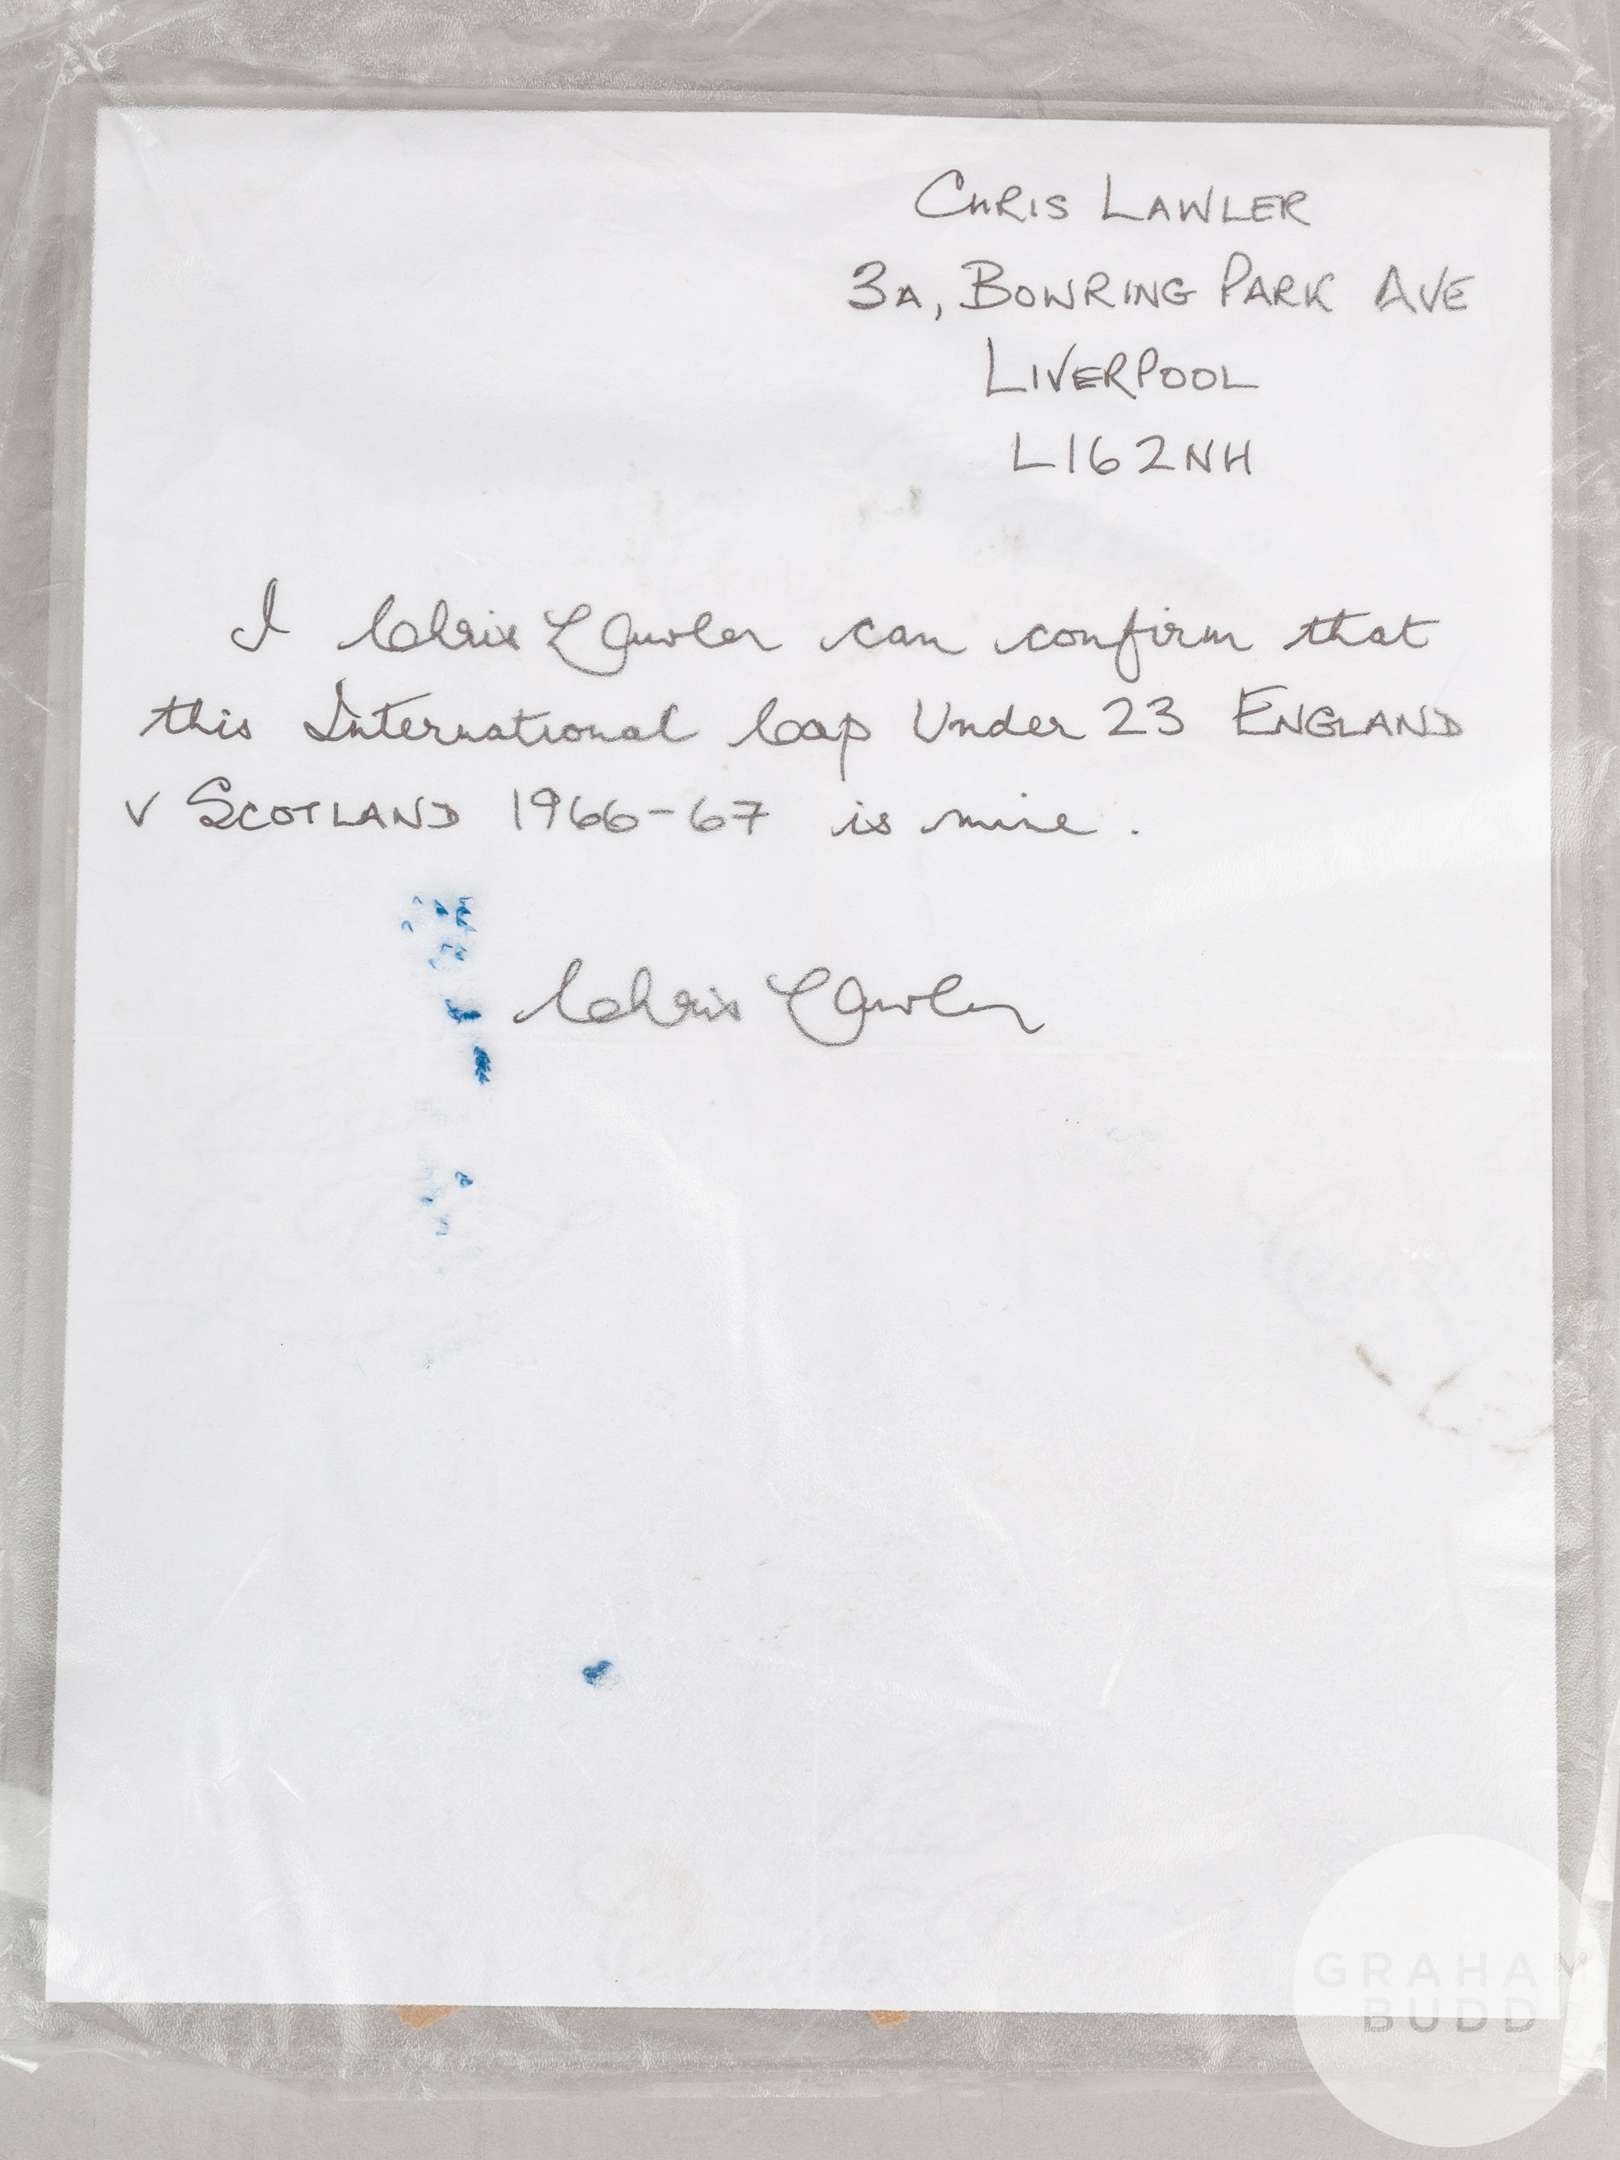 CHRIS LAWLER
3A, BOWRING PARK AVE
LIVERPOOL
L162NH
I Chris Lawler can confirm that
this International Cap Under 23 ENGLAND
v SCOTLAND 1966-67 is mine.
Chris Lawler
GRAHAM
BUDD